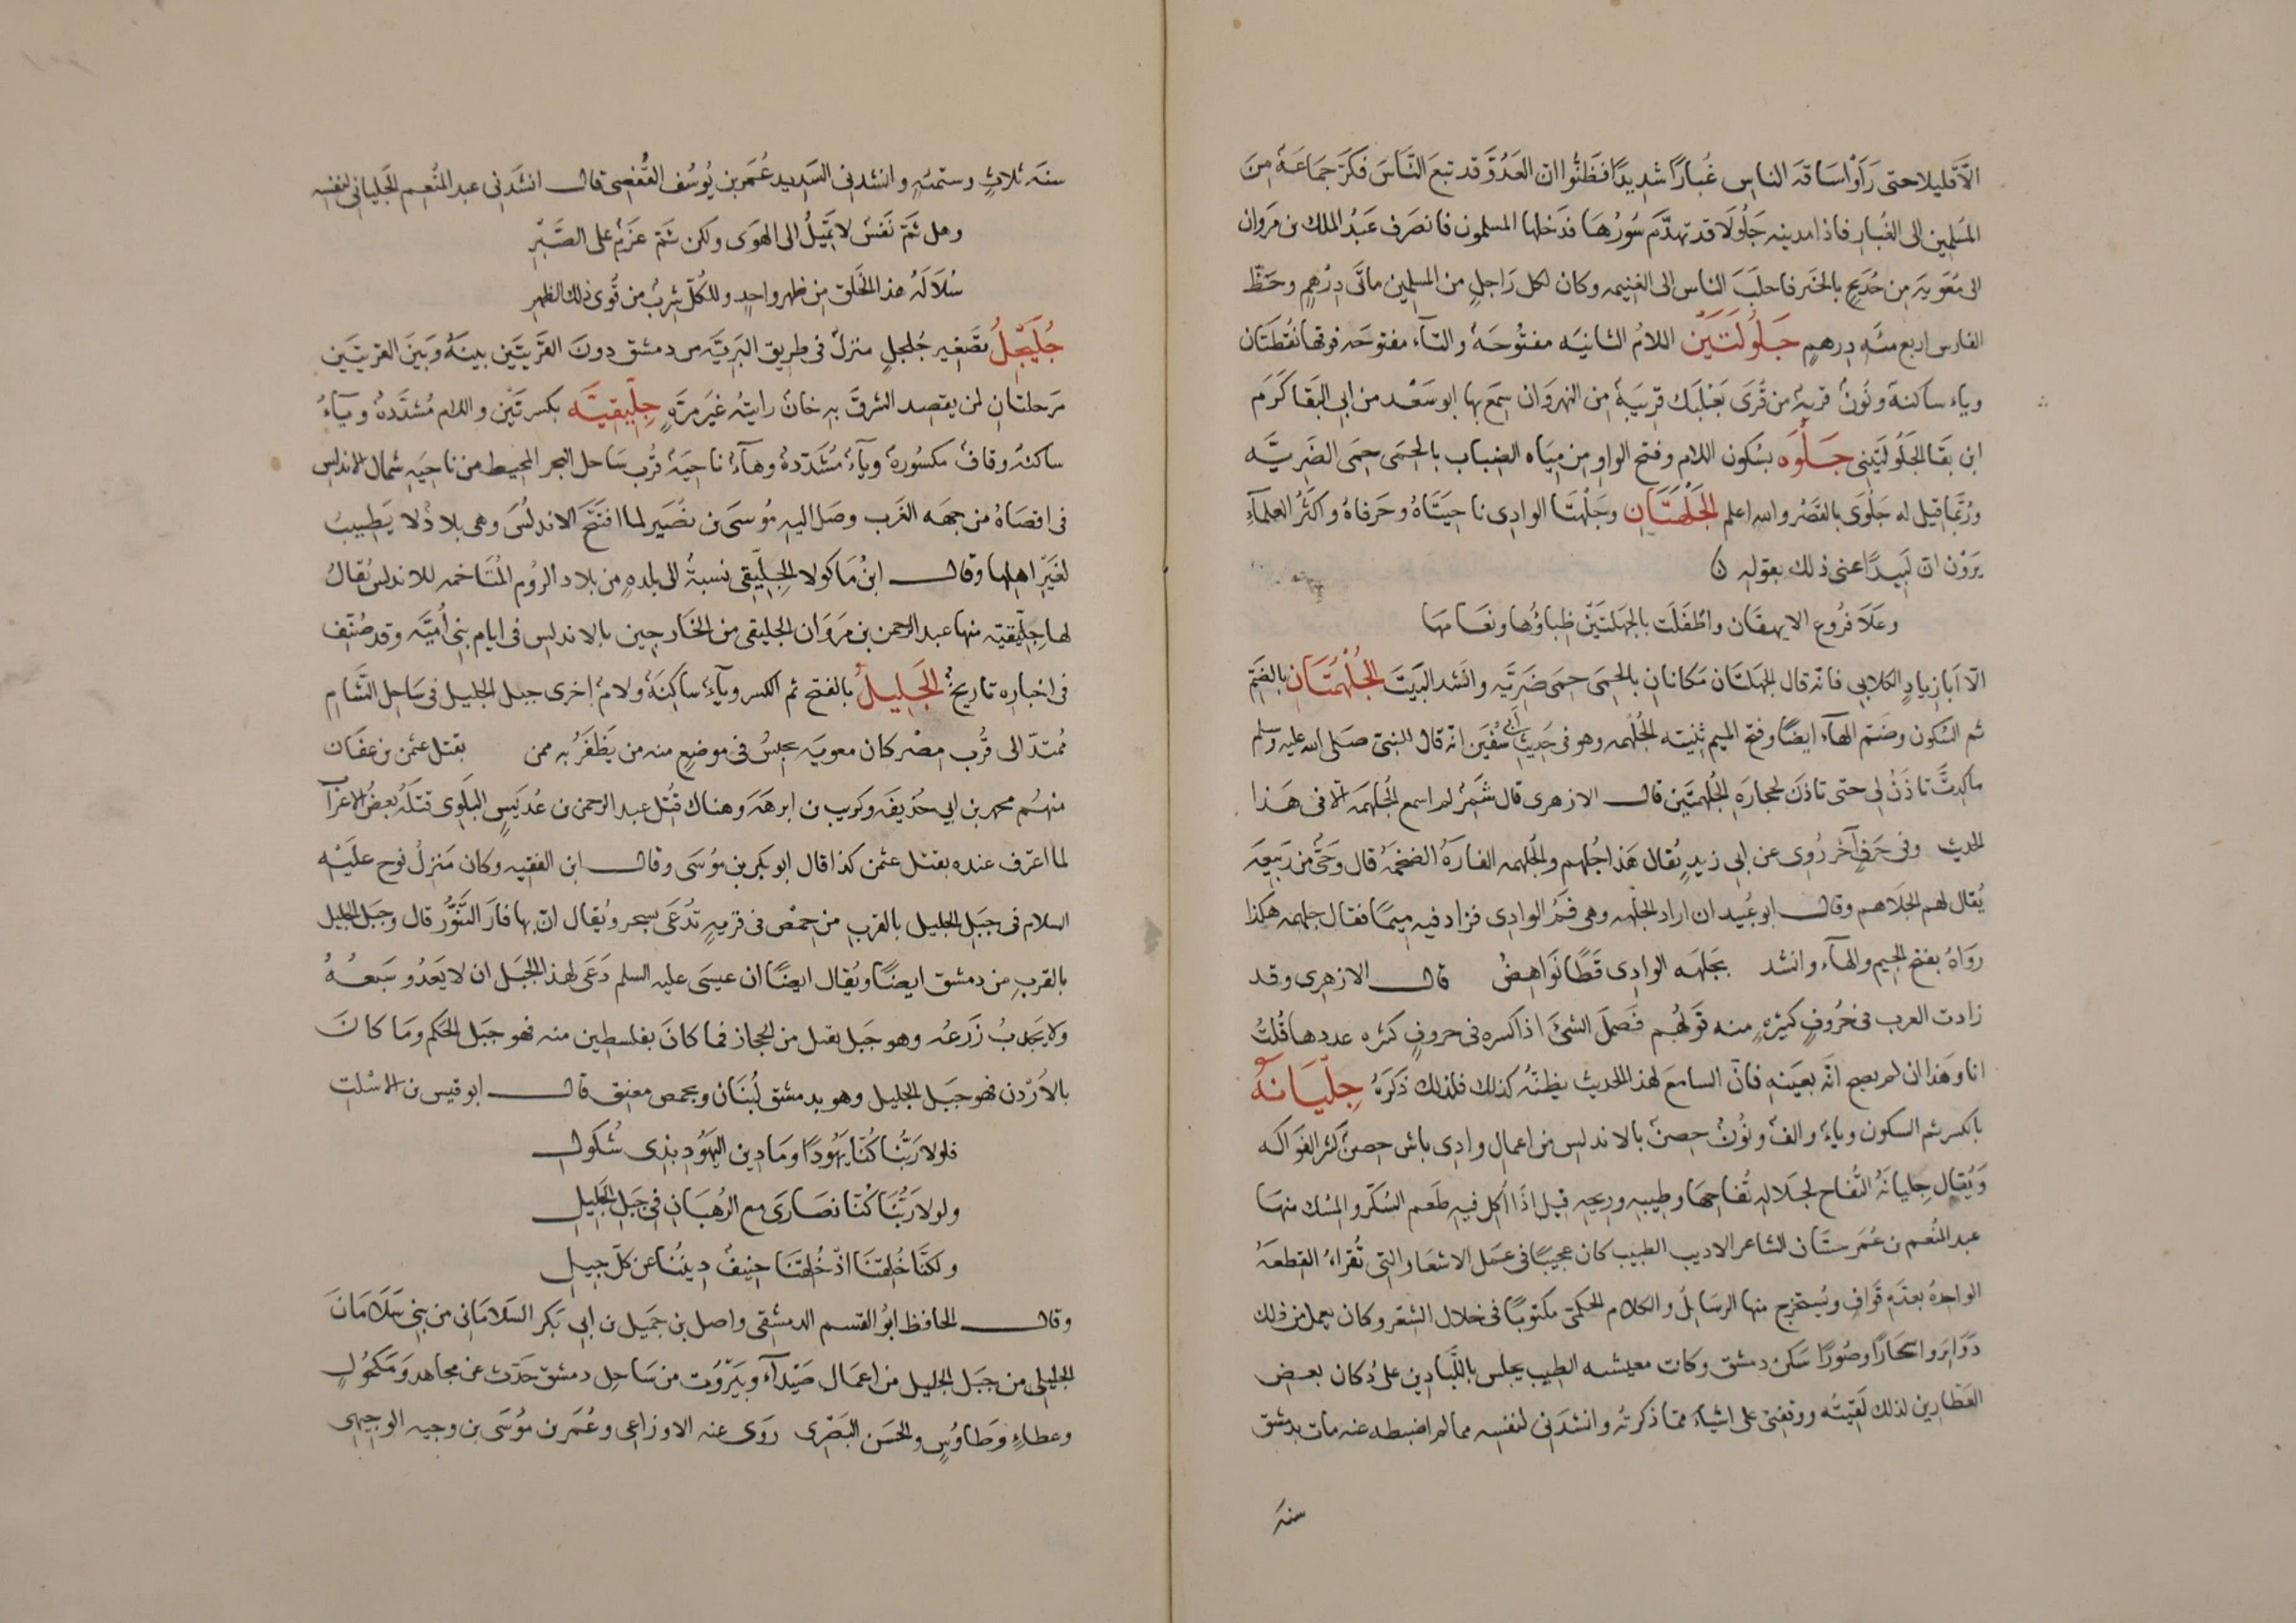 الّا قليلا حتى رَأَوْا سَاقة الناس غُبارًا شديدًا فظَنُّوا ان العَدُوَّ قد تبعَ النَّاسَ فكَرَّ جمَاعَةٌ مِنَ
المسَلمِين الى الغُبارِ فاذا مدينه جَلُولَا قد تهدَّمَ سُورُهَا فدَخلها المسلمون فانصَرف عَبْدُ الملك بن مَروَان
الى مُعَوية بن حُدَيج بالخبَر فاحلَبَ الناس الى الغنيمه وكان لكل رَاجلٍ من المسلمين مائتَى دِرْهمٍ وحَظّ
الفارس اربع مئَهِ دِرهمٍ جَلُولَتَيْن اللامُ الثانيَه مفتُوحَةٌ والتآء مفتوحَه فوقها نُقطَتَان
وياء ساكنة ونُونٌ قريةٌ من قُرَى بَعْلَبَك قريَبةٌ مِن النهروَان سِمَع بها ابو سَعْد من ابى البَقا كَرَم
ابن بَقَا الجَلُولَتَينى جَلْوَه بسُكون اللام وفتح الواو مِن مِيَاه الضِباب بالحِمَى حِمَى الضَرِيَّه
ورُبَّما قيل له جَلْوَى بالقَصْر والله اعلم الجَلْهَتَانِ وجَلْهَتَا الوادِى ناحيَتَاهُ وحَرفاهُ واكثَرُ العلمآءِ
يَرَوْن ان لَبيدًا عنى ذلك بقوله
وعَلَا فرُوع الايهقَان واطْفَلَت بالجَهلتَيْن ظباؤُها ونعَامهَا
الّا اَبا زيادٍ الكلابى فانّه قال الجهلتَان مَكانانِ بالحِمَى حِمَى ضَريَّه وانَشد البَيتَ الجُلْهُمَتَانِ بالضَمّ
ثم السُكون وضَم الهآء ايضًا وفتح الميم تثنيته الجُلْهُمه وهو فى حَدِيثِ أبى سُفيَن انّه قال للنبىّ صَلى الله عليه وسَلم
ما كِدتَّ تاذَنُ لى حتى تاذنَ لحجارَةِ الجُلْهمَتَيْن قال الازهرى قال شَمِرٌ لم اسمع الجُلْهُمَة الّا فى هَذا
الحديث وفى حَرفٍ آخَر رُوِى عن ابى زيدٍ يُقال هَذا جُلهم والجُلهمه الفارَةُ الضخمَةُ قال وحَىٌّ من رَبيعَه
يُقال لهم الجَلَاهم وقال ابو عُبيد ان اراد الجَلْهة وهى فَمُ الوادِى فزاد فيه مِيمًا فقال جلهمه هَكذا
رَوَاهُ بفتح الجيم والهآء وانشد بجَلهَة الوادِى قَطًا نَوَاهِضُ قال الازهِرى وقد
زادت العرب فى حُروفٍ كثيرةٍ منه قولُهُم قَصمَلَ الشئَ اذا كسره فى حروفٍ كثره عددها قُلتُ
انا وهَذا ان لم يصح انّه بعَينه فانّ السامعَ لهذا الحديث يظنّهُ كذلك فلذلك ذَكرَهُ جِلْيَانَةُ
بالكسر ثم السكون وياءٌ والفٌ ونُونٌ حِصنٌ بالاندلس مِن اعمال وادِى ياش حصينٌ كثير الفَواكه
وَيُقال جِليانَةُ التُّفاح لجَلاله تُفاحِها وطِيبه وريحِه قيل اِذَا اُكل فيه طَعم السُكّر والمِسْك منهَا
عبد المُنعم بن عُمَر حسَّان الشاعر الاديب الطبيب كان عجيبًا فى عمَل الاشعَار التى تُقراءُ القطعَهُ
الواحِدَةُ بعدَّةِ قَوافٍ ويُستخرَج منها الرسَايلُ والكلام الحكمىّ مكتوبًا فى خلال الشِعر وكان يعمل من ذلك
دَوَاير واشجَارًا وصُورًا سَكنَ دمشق وكانت معيشته الطب يجلس باللبَّادِين على دُكان بعض
العَطارين لذلك لَقِيتُه ووقفنى على اشياءَ ممّا ذكرتُه وانشدَنى لنفسِه مما لم اضبطه عنه مات بدمشق
سنة
سنَة ثلاثٍ وستمئهِ وانشدنى السَديد عُمَر بن يُوسُف القُفصى قال انشَدنى عبد المُنعم الجليانى لنفسِه
وهل ثَمَّ نَفسٌ لا تَميلُ الى الهوَى ولكن ثمَّ عزَمٌ على الصَّبْرِ
سُلَالَةُ هذا الخَلقِ مِن ظهر واحِدٍ وللكُلّ شِربٌ من قُوى ذلك الظهرِ
جُلَيْجِلُ تصَغير جُلجل منزلٌ فى طريق البَريَّه من دمشق دونَ القَرْيتَين بينَهُ وبَينَ القريتَين
مَرحلتان لمن يقصد الشرقَ بهِ خانٌ رايتهُ غَيرَ مَرّةٍ جِلِّيقِيَّه بكسرتَيْن واللام مُشدَّدةٌ ويآءُ
ساكنةٌ وقافٌ مكسُورةٌ ويآءٌ مُشَدّدةٌ وهآءٌ ناحيَةٌ قُرْب سَاحل البحر المحيط من ناحيَهِ شمال الاندلس
فى اقصَاهُ من جهَه الغَرب وصَل اليه مُوسَى بن نصُيَر لما افتَتَح الاندلُسَ وهى بلادٌ لا يَطيبُ
لغَيْر اهلها وقال ابنُ مَاكولا الجِلّيقِى نسبةٌ الى بلدهٍ مِن بلاد الرُوم المُتَاخمه للاندلس يُقالُ
لها جِلّيقية منها عبد الرحمن بن مَروَان الجليقى من الخَارجِين بالاندلس فى ايام بنى اُميَّه وقد صُنّف
فى اخبارِه تاريخٌ الجَلِيلُ بالفتح ثم الكسر ويآءٌ ساكِنَةٌ ولامٌ اخرى جبل الجليل فى سَاحِل الشَّام
مُمتدّ الى قُرْب مِصْر كان معويه يحبِسُ فى موضِعٍ منه من يَظفَرُ به ممن بقتل عثمن بن عفَان
منهُم محمد بن ابى حُذيفَه وكريب بن ابرهَة وهناك قُتل عبد الرحمن بن عُديَسٍ البَلَوِى قتلَهُ بعضُ الاعرَاب
لما اعترف عنده بقتل عثمن كذا قال ابو بكر بن مُوسَى وقال ابن الفقيه وكان مَنزلُ نوح عليَه
السلام فى جَبَل الجليل بالقرب من حِمْص فى قريهٍ تُدْعَى سِحر ويُقال انّ بها فارَ التَّنُّور قال وجَبَل الجليل
بالقربِ من دمشق ايضًا ويُقال ايضًا ان عيسَى عليه السلم دَعَى لهذا الجبَل ان لا يَعْدُو سَبعُهُ
ولا يَجدِبُ زَرعُه وهو جَبل يقبل من الحجاز فما كانَ بفلسطين منه فهو جبَل الحَكم ومَا كانَ
بالاَرْدن فهو جبَل الجليل وهو بدمشق لُبْنَان وبحمص معنِق قال ابو قيس بن الاسْلت
فلولا رَبُّنا كُنّا يَهُودًا ومَا دِين اليَهُودِ بذِى شُكولِ
ولولا رَبُّنَا كُنّا نصَارَى مع الرُهبَانِ فى جَبل الجَليلِ
ولكنّا خُلِقنَا اذْ خُلِقنَا حَنِيفٌ دِيننُا عن كلّ جِيلِ
وقال الحافظ ابُو القسم الدمشقى واصل بن جَميل بن ابى بَكر السَلامَانى من بنى سَلَامَانَ
الجليلى من جبَل الجليل من اعمَال صَيْدَآء وبَيْرُوت من سَاحِل دمشق حَدّث عن مجاهد وَمَكحُولٍ
وعطاءٍ وَطاوُسٍ والحَسَن البَصْرى روَى عنه الاوزاعى وعُمَر بن مُوسَى بن وجيه الوجيهى